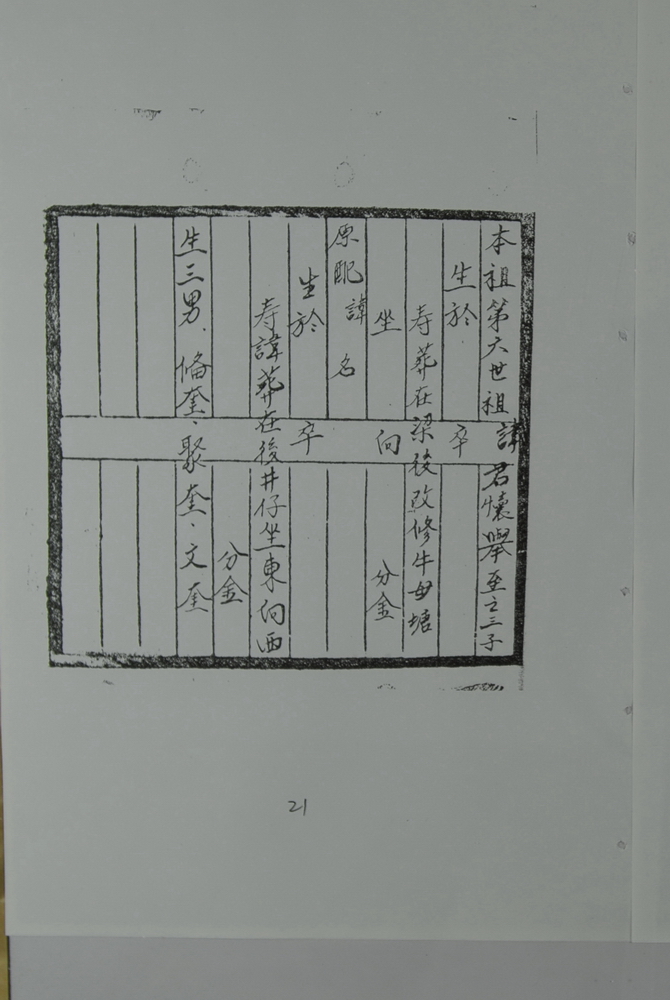 本祖第六世祖諱君懷舉至之三子
生於 卒
寿 葬在梁後改修牛母塘
坐 向 分金
原配諱 名
生於 卒
寿 諱葬在後井仔坐東向西
分金
生三男、脩奎、聚奎、文奎
21